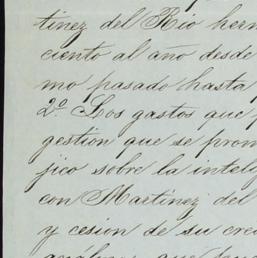 tinez del Rio herm
ciento al año desde
mo pasado hasta
2º Los gastos que
gestion que se prom
jico sobre la intelig
con Martinez del
y cesion de su cre